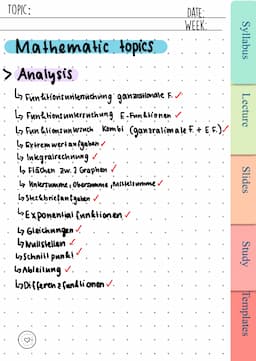 TOPIC:
DATE:
WEEK:
Mathematic topics
> Analysis
↳ Funktionsuntersuchung ganzrationale F. ✓
↳ Funktionsuntersuchung E-Funktionen ✓
↳ Funktionsuntersuch Kombi (ganzrationale F. + E F.) ✓
↳ Extremwertaufgaben ✓
↳ Integralrechnung ✓
↳ Flächen zw. 2 Graphen ✓
↳ Untersumme, Obersumme, Mittelsumme ✓
↳ Steckbriefaufgaben ✓
↳ Exponential funktionen ✓
↳ Gleichungen ✓
↳ Nullstellen ✓
↳ Schnittpunkt ✓
↳ Ableitung ✓
↳ Differenzfunktionen ✓
Syllabus
Lecture
Slides
Study
Templates